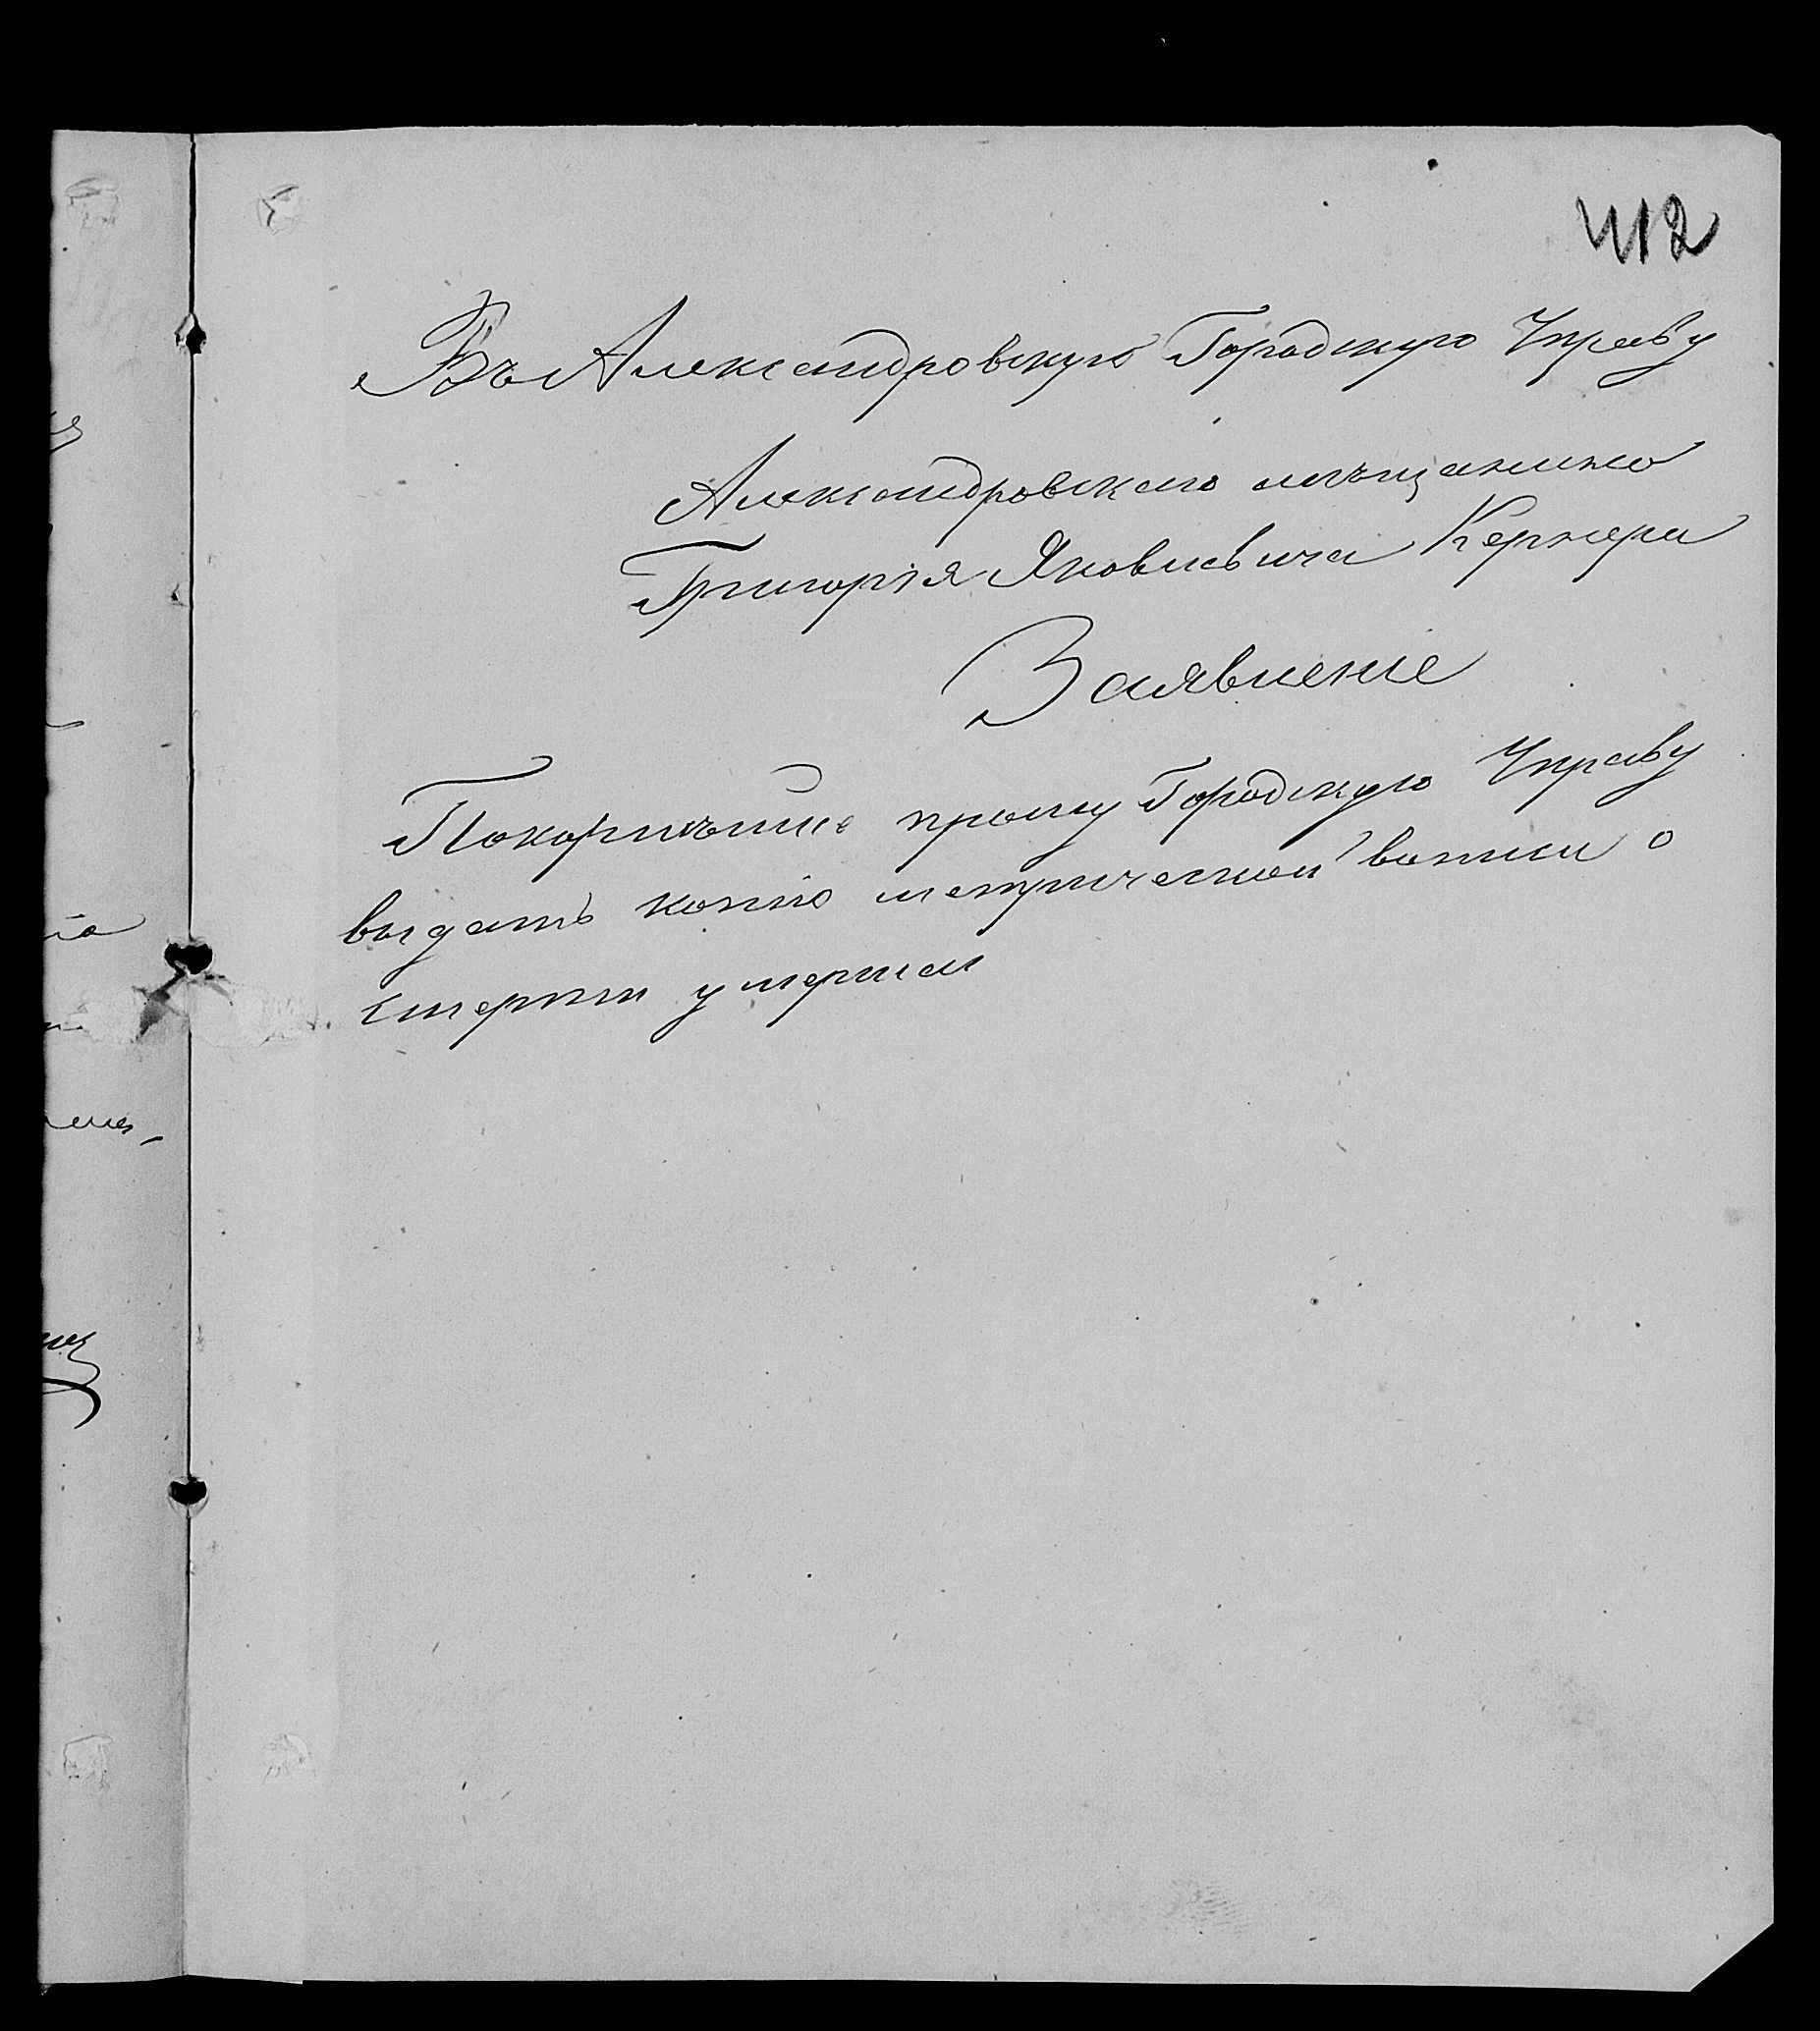 412
Въ Александровскую Городскую Управу
Александровскаго мѣщанина
Григорія Яковлевича Кернера
Заявленіе
Покорнѣйше прошу Городскую Управу
выдать копію метрической выписи о
смерти умершей